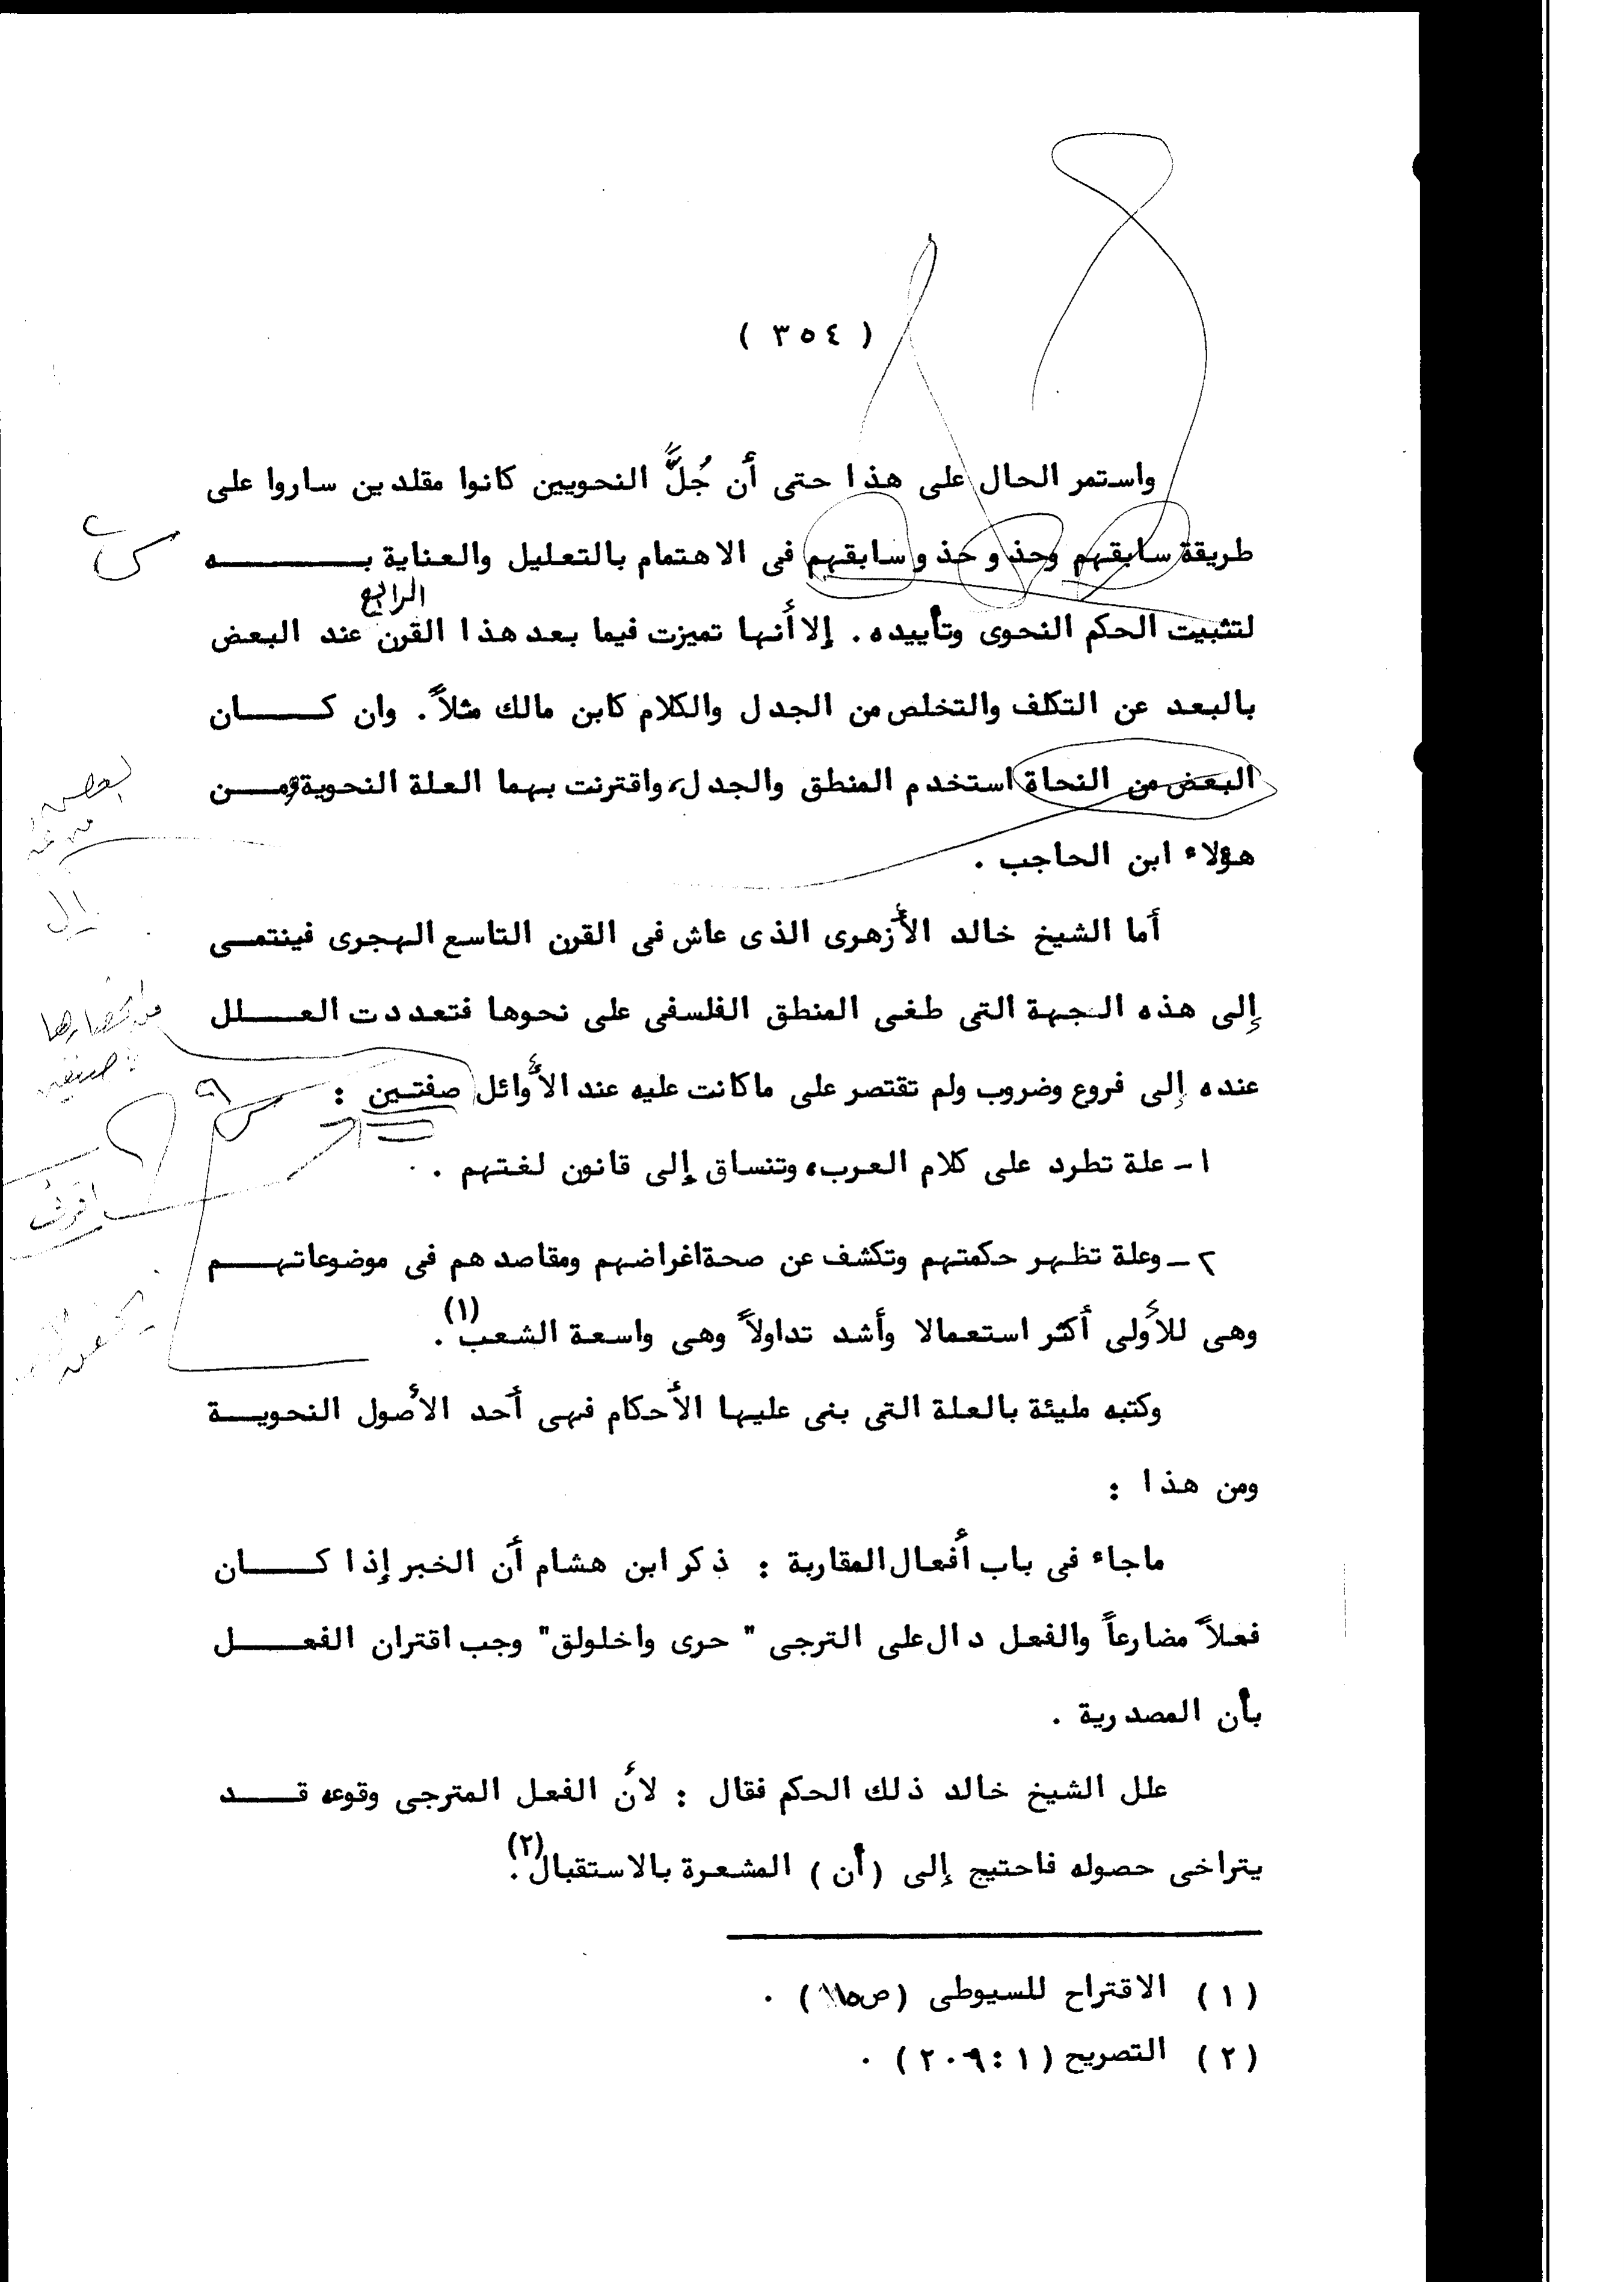 ( ٣٥٤ )
واستمر الحال على هذا حتى أن جُلَّ النحويين كانوا مقلدين ساروا على
طريقة سابقهم وحذو حذو سابقهم فى الاهتمام بالتعليل والعناية بــــه
الرابع
لتثبيت الحكم النحوى وتأييده . إلا أنها تميزت فيما بعد هذا القرن عند البعض
بالبعد عن التكلف والتخلص من الجدل والكلام كابن مالك مثلاً . وان كــــان
البعض من النحاة استخدم المنطق والجدل، واقترنت بهما العلة النحوية ومــن
هؤلاء ابن الحاجب .
أما الشيخ خالد الأزهرى الذى عاش فى القرن التاسع الهجرى فينتمــى
إلى هذه الجهة التى طغى المنطق الفلسفى على نحوها فتعددت العــــلل
عنده إلى فروع وضروب ولم تقتصر على ماكانت عليه عند الأوائل صفتــين :
١ـ علة تطرد على كلام العرب، وتنساق إلى قانون لغتهم .
٢ ـ وعلة تظهر حكمتهم وتكشف عن صحة اغراضهم ومقاصدهم فى موضوعاتهــــم
وهى للأولى أكثر استعمالا وأشد تداولاً وهى واسعة الشعب (١) .
وكتبه مليئة بالعلة التى بنى عليها الأحكام فهى أحد الأصول النحويــــة
ومن هذا :
ماجاء فى باب أفعال المقاربة : ذكر ابن هشام أن الخبر إذا كــــان
فعلاً مضارعاً والفعل دال على الترجى " حرى واخلولق" وجب اقتران الفعــــل
بأن المصدرية .
علل الشيخ خالد ذلك الحكم فقال : لأن الفعل المترجى وقوعه قــــد
يتراخى حصوله فاحتيج إلى (أن ) المشعرة بالاستقبال (٢) .
(١) الاقتراح للسيوطى
(٢) التصريح ( ١ : ٢٠٩ ) .